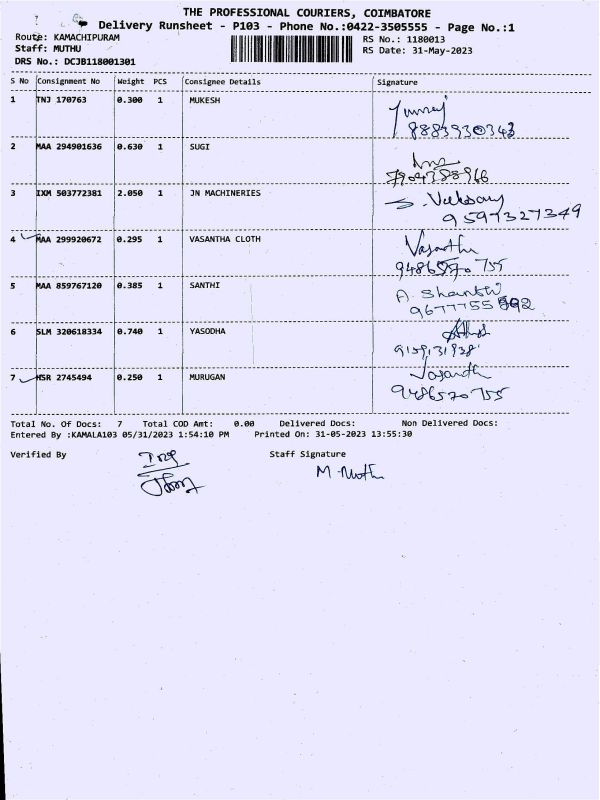 THE PROFESSIONAL COURIERS, COIMBATORE
Delivery Runsheet - P103 - Phone No.:0422-3505555 - Page No.:1
Route: KAMACHIPURAM
RS No.: 1180013
Staff: MUTHU
RS Date: 31-May-2023
DRS No.: DCJB118001301
S No Consignment No Weight PCS Consignee Details Signature
1 TNJ 170763 0.300 1 MUKESH
8883930343
2 MAA 294901636 0.630 1 SUGI
7904388966
3 IXM 503772381 2.050 1 JN MACHINERIES
9597327349
4 MAA 299920672 0.295 1 VASANTHA CLOTH Vasanth
9486570755
5 MAA 859767120 0.385 1 SANTHI A. Shanthi
9677755
6 SLM 320618334 0.740 1 YASODHA
9159131938
7 HSR 2745494 0.250 1 MURUGAN Vasanth
9486570755
Total No. Of Docs: 7 Total COD Amt: 0.00 Delivered Docs: Non Delivered Docs:
Entered By :KAMALA103 05/31/2023 1:54:10 PM Printed On: 31-05-2023 13:55:30
Verified By Staff Signature
M. Muthu